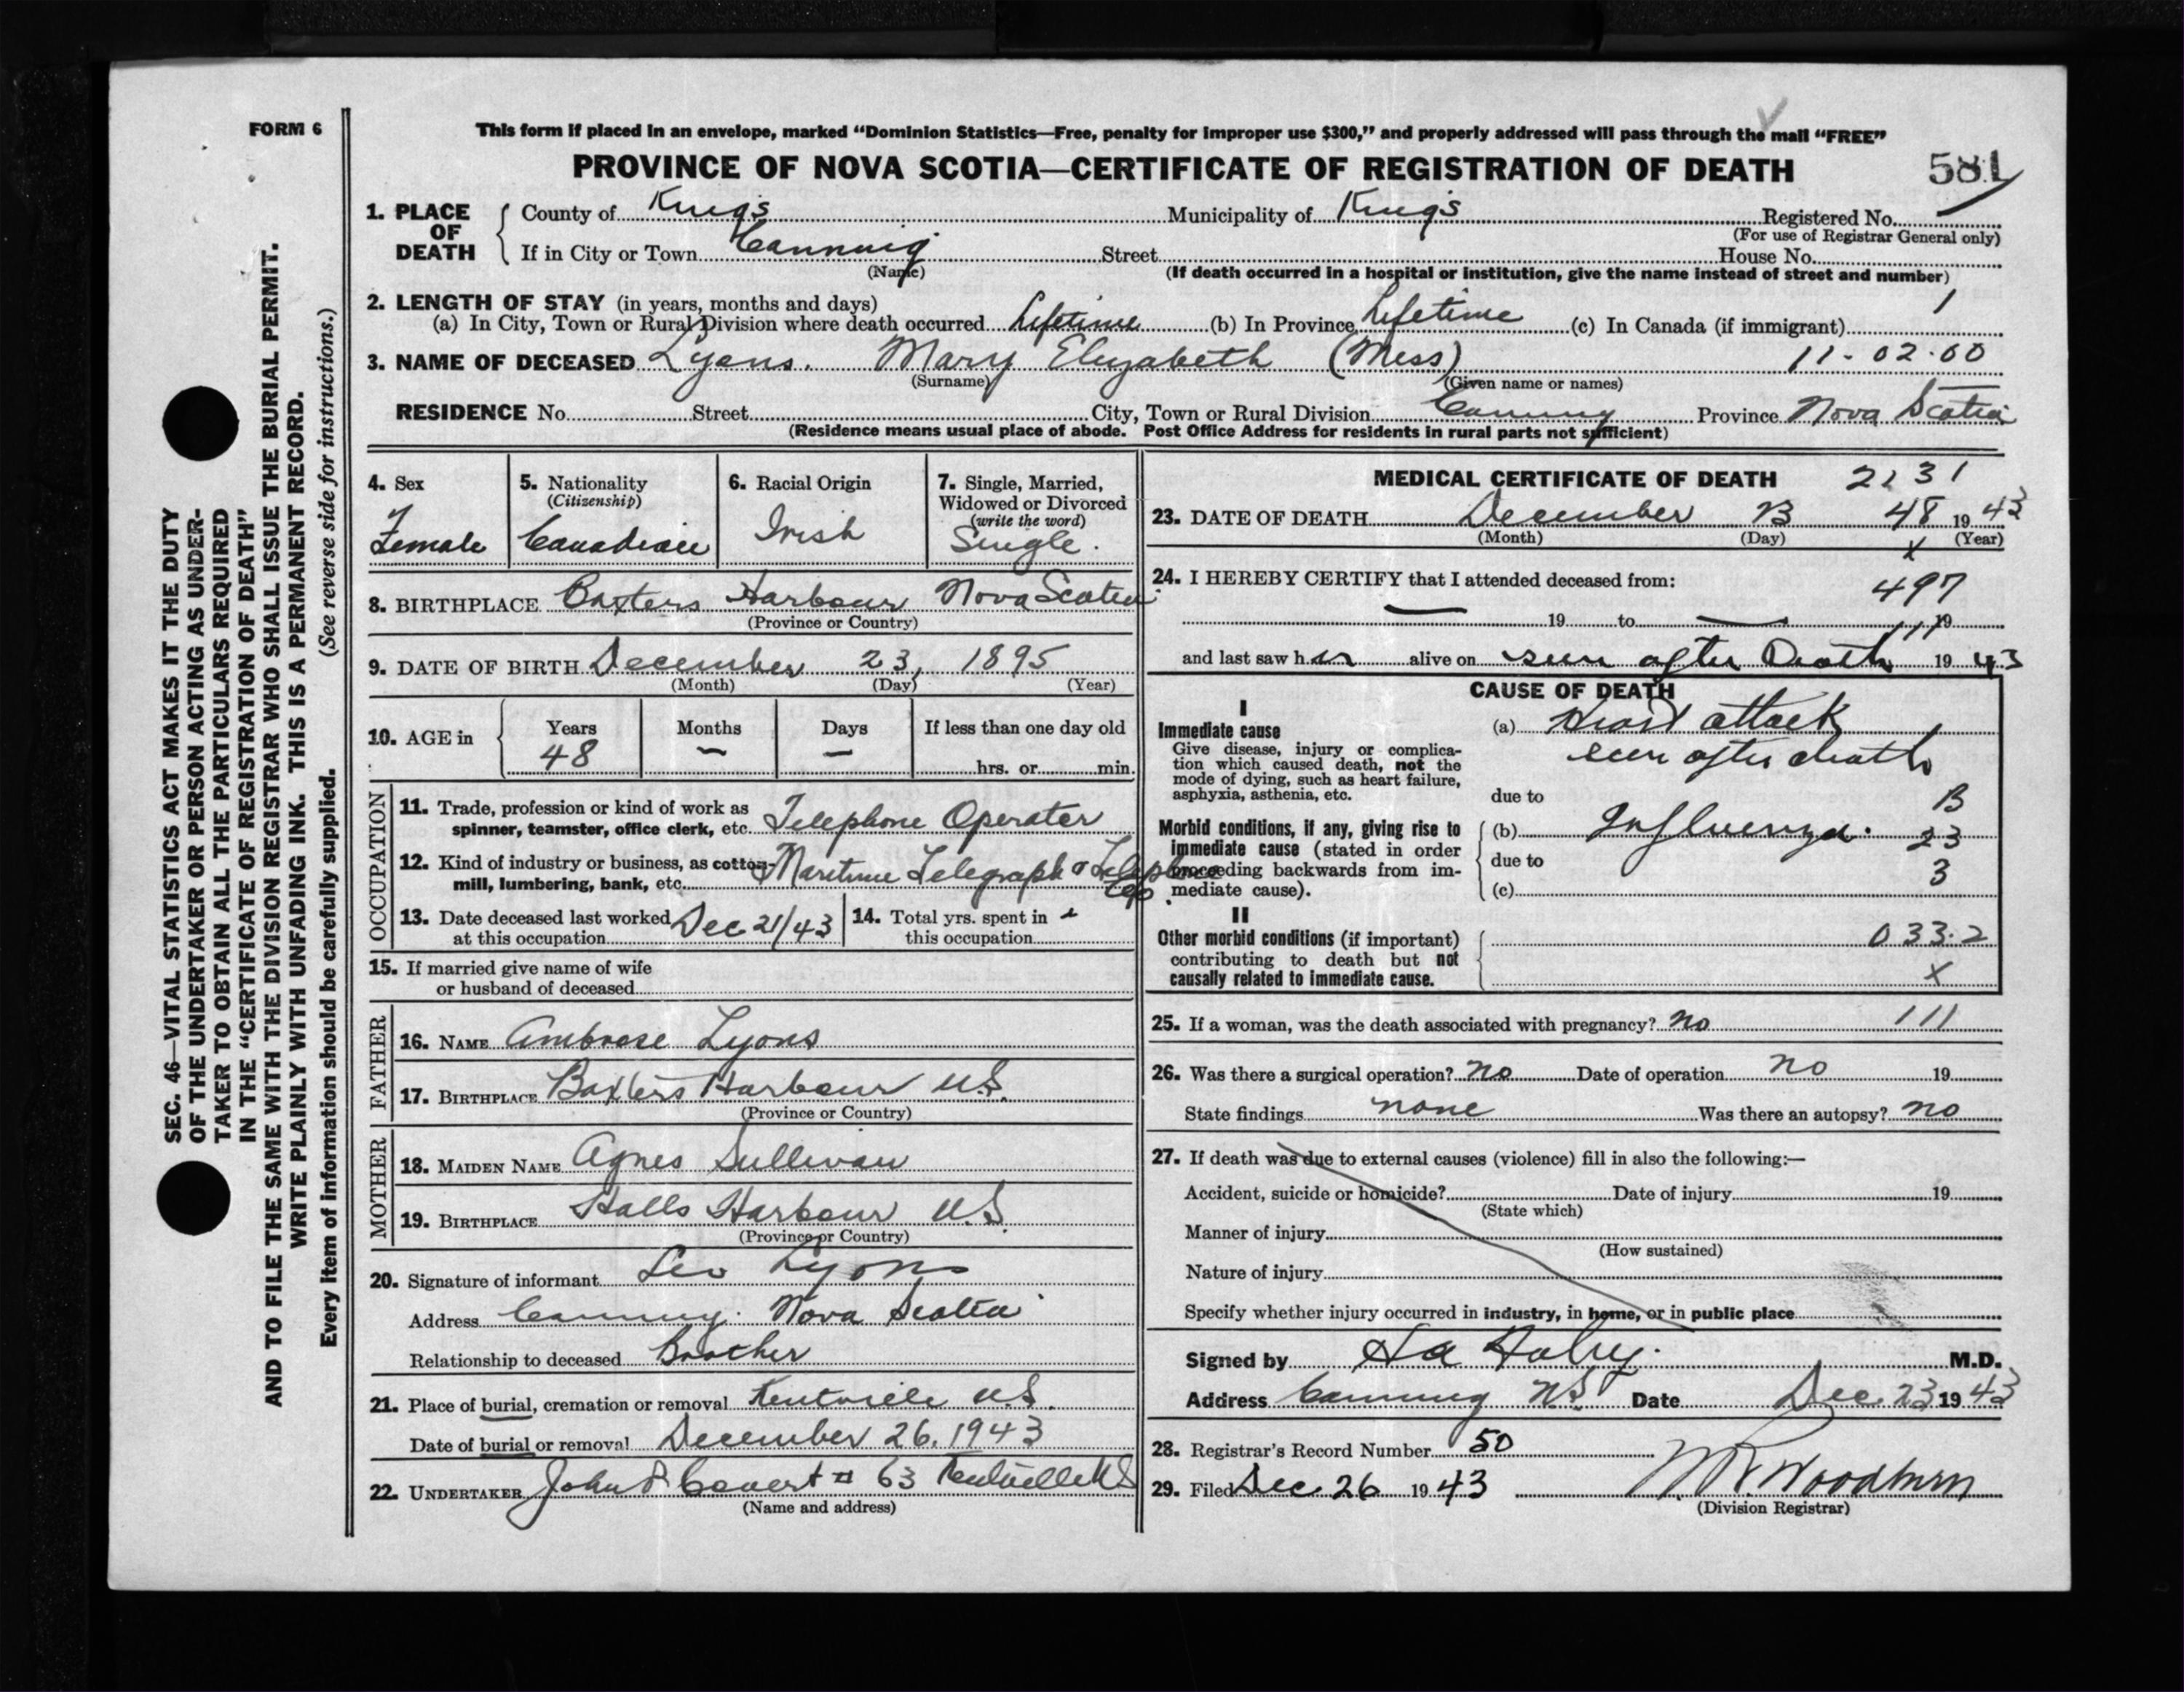 FORM 6
This form if placed in an envelope, marked “Dominion Statistics—Free, penalty for improper use $300,” and properly addressed will pass through the mail “FREE”
PROVINCE OF NOVA SCOTIA—CERTIFICATE OF REGISTRATION OF DEATH
581
1. PLACE OF DEATH
County of Kings Municipality of Kings Registered No.
(For use of Registrar General only)
If in City or Town Canning Street House No.
(Name) (If death occurred in a hospital or institution, give the name instead of street and number)
2. LENGTH OF STAY (in years, months and days)
(a) In City, Town or Rural Division where death occurred Lifetime (b) In Province Lifetime (c) In Canada (if immigrant) 1
3. NAME OF DECEASED Lyons. Mary Elizabeth (Miss) 11-02.00
(Surname) (Given name or names)
RESIDENCE No. Street City, Town or Rural Division Canning Province Nova Scotia
(Residence means usual place of abode. Post Office Address for residents in rural parts not sufficient)
4. Sex
Female
5. Nationality
(Citizenship)
Canadian
6. Racial Origin
Irish
7. Single, Married,
Widowed or Divorced
(write the word)
Single.
8. BIRTHPLACE Baxters Harbour Nova Scotia
(Province or Country)
9. DATE OF BIRTH December 23, 1895
(Month) (Day) (Year)
10. AGE in
Years Months Days If less than one day old
48 — — hrs. or min.
OCCUPATION
11. Trade, profession or kind of work as
spinner, teamster, office clerk, etc. Telephone Operator
12. Kind of industry or business, as cotton-
mill, lumbering, bank, etc. Maritime Telegraph & Telephone
Co.
13. Date deceased last worked
at this occupation Dec 21/43
14. Total yrs. spent in
this occupation
15. If married give name of wife
or husband of deceased
FATHER
16. NAME Ambrose Lyons
17. BIRTHPLACE Baxters Harbour N.S.
(Province or Country)
MOTHER
18. MAIDEN NAME Agnes Sullivan
19. BIRTHPLACE Halls Harbour N.S.
(Province or Country)
20. Signature of informant Leo Lyons
Address Canning. Nova Scotia
Relationship to deceased Brother
21. Place of burial, cremation or removal Kentville N.S.
Date of burial or removal December 26, 1943
22. UNDERTAKER John P Covert # 63 Kentville NS
(Name and address)
MEDICAL CERTIFICATE OF DEATH 2231
23. DATE OF DEATH December 23 48 19 43
(Month) (Day) (Year)
x
24. I HEREBY CERTIFY that I attended deceased from: 497
— 19 to — 19
and last saw her alive on seen after Death 19 43
CAUSE OF DEATH
I
Immediate cause
Give disease, injury or complica-
tion which caused death, not the
mode of dying, such as heart failure,
asphyxia, asthenia, etc.
(a) Heart attack
seen after death
due to B
Morbid conditions, if any, giving rise to
immediate cause (stated in order
proceeding backwards from im-
mediate cause).
(b) Influenza. 23
due to 3
(c)
II
Other morbid conditions (if important)
contributing to death but not
causally related to immediate cause.
033.2
x
25. If a woman, was the death associated with pregnancy? no 111
26. Was there a surgical operation? no Date of operation no 19
State findings none Was there an autopsy? no
27. If death was due to external causes (violence) fill in also the following:—
Accident, suicide or homicide? Date of injury 19
(State which)
Manner of injury
(How sustained)
Nature of injury
Specify whether injury occurred in industry, in home, or in public place
Signed by M.D.
Address Canning NS Date Dec. 23 19 43
28. Registrar's Record Number 50
29. Filed Dec. 26 19 43 Woodburn
(Division Registrar)
SEC. 46—VITAL STATISTICS ACT MAKES IT THE DUTY
OF THE UNDERTAKER OR PERSON ACTING AS UNDER-
TAKER TO OBTAIN ALL THE PARTICULARS REQUIRED
IN THE “CERTIFICATE OF REGISTRATION OF DEATH”
AND TO FILE THE SAME WITH THE DIVISION REGISTRAR WHO SHALL ISSUE THE BURIAL PERMIT.
WRITE PLAINLY WITH UNFADING INK. THIS IS A PERMANENT RECORD.
Every item of information should be carefully supplied. (See reverse side for instructions.)